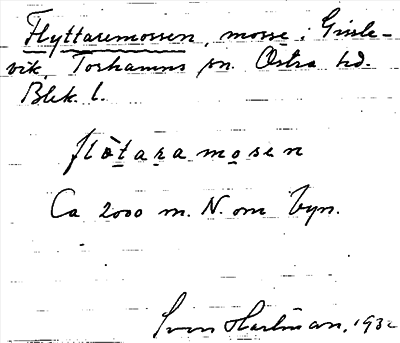 Flyttaremossen, mosse i Gisle-
vik, Torhamns sn. Östra hd.
Blek. l.
flòtaramosen
Ca 2000 m. N. om byn.
Sven Hartman, 1932